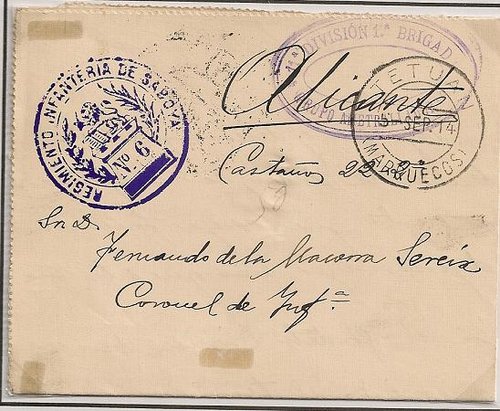 REGIMIENTO INFANTERIA DE SABOYA
Nº 6
1ª DIVISIÓN 1.ª BRIGAD
GRUPO
TETUAN
SEP.14
(MARRUECOS)
Alicante
Castaños 22 2º
Sr. D.
Fernando de la Macorra Sereix
Coronel de Infª